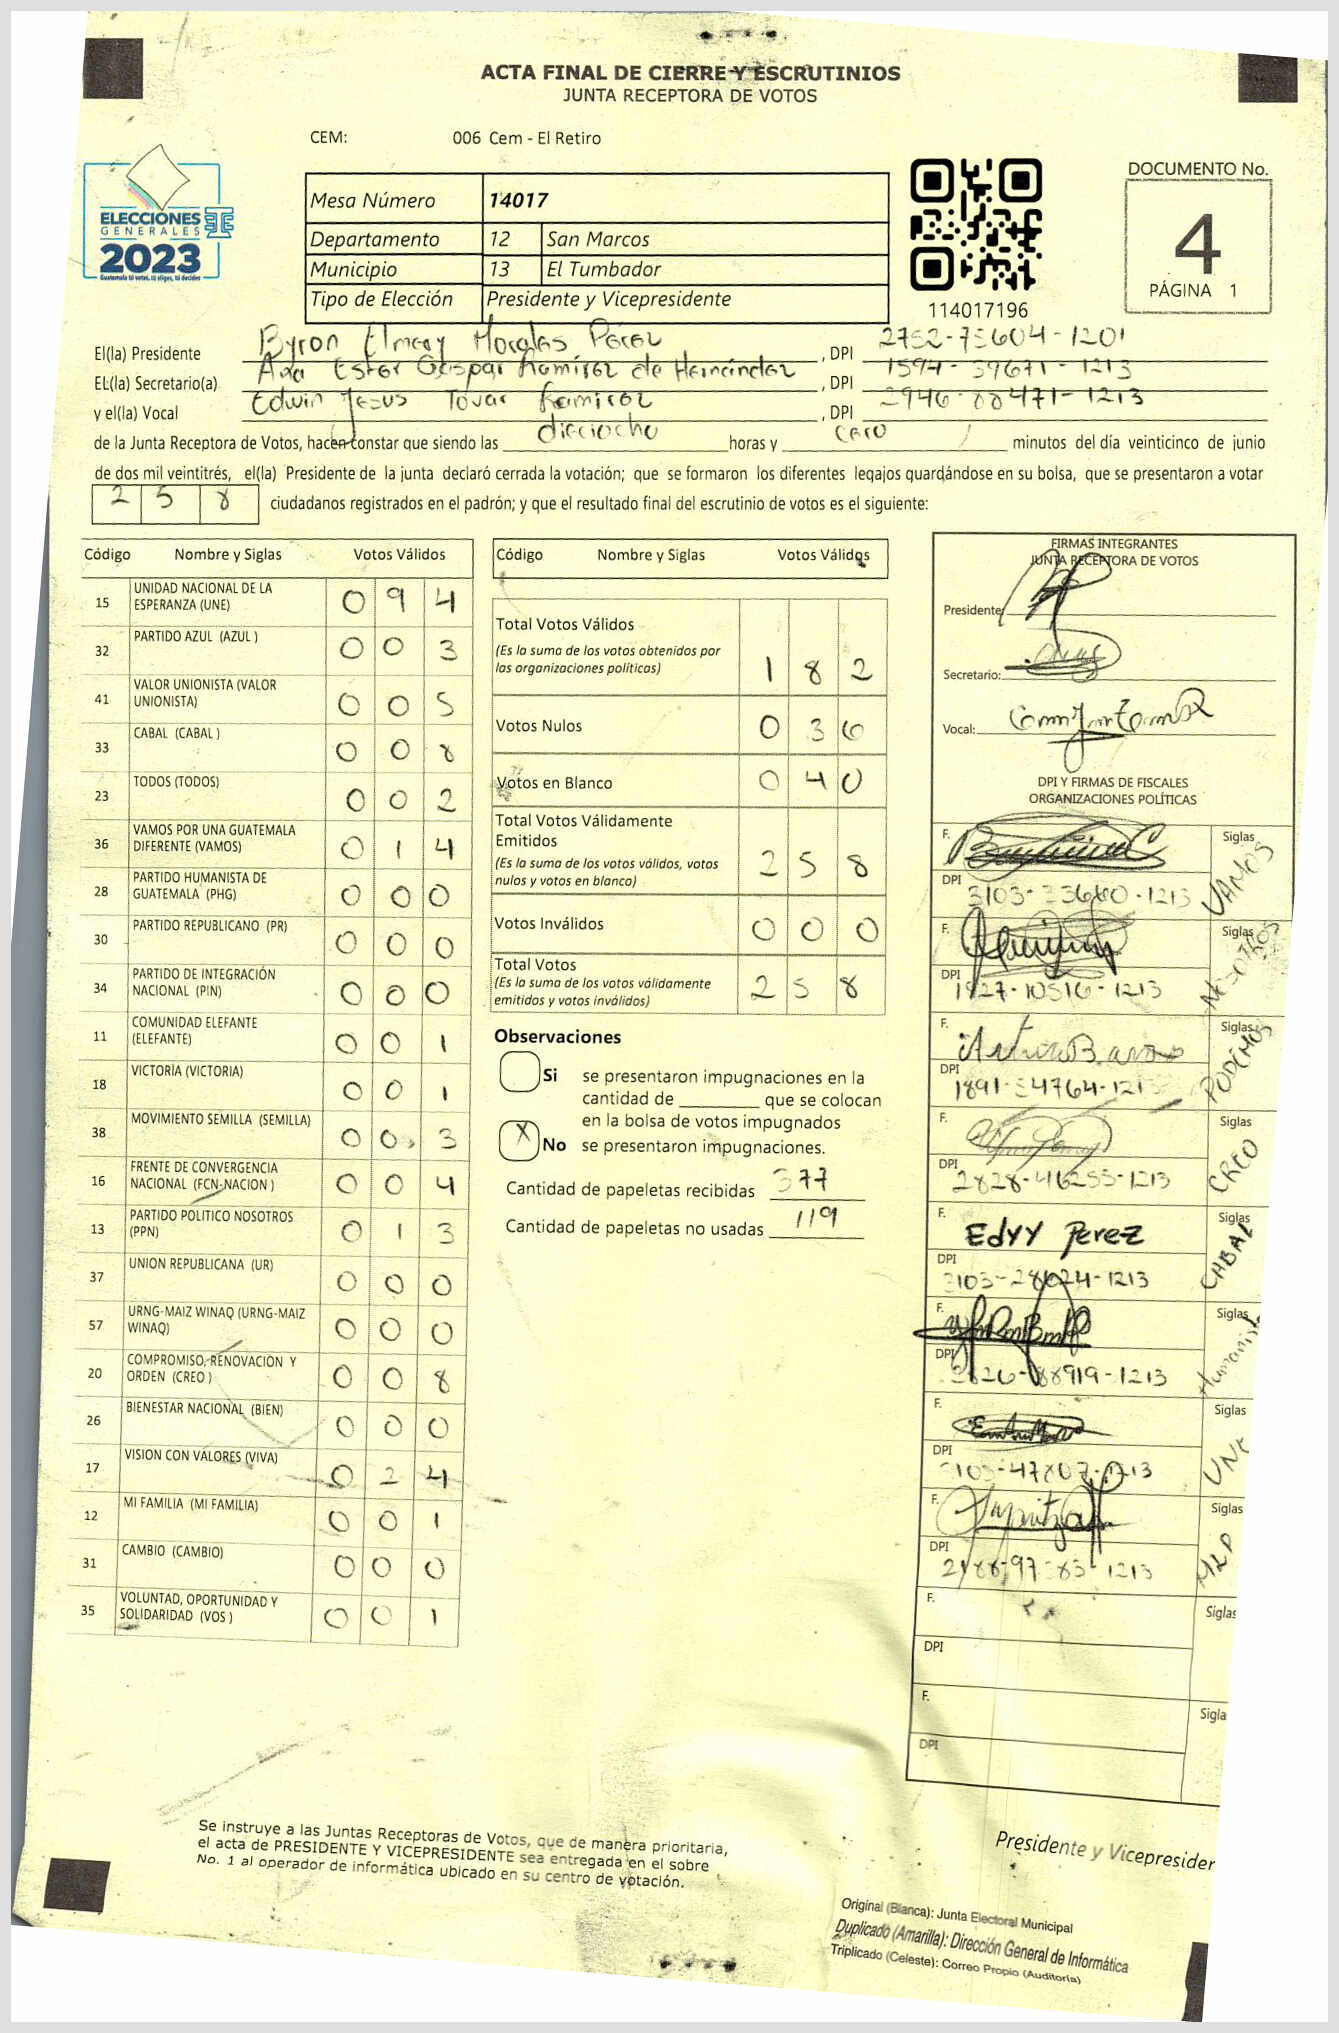 ACTA FINAL DE CIERRE Y ESCRUTINIOS
JUNTA RECEPTORA DE VOTOS
CEM: 006 Cem - El Retiro
ELECCIONES
GENERALES
2023
Guatemala tú votas, tú eliges, tú decides
Mesa Número 14017
Departamento 12 San Marcos
Municipio 13 El Tumbador
Tipo de Elección Presidente y Vicepresidente
114017196
DOCUMENTO No.
4
PÁGINA 1
El(la) Presidente Byron Elmery Morales Pérez , DPI 2752-75604-1201
EL(la) Secretario(a) Ana Ester Gaspar Ramirez de Hernández , DPI 1594-59671-1213
y el(la) Vocal Edwin Jesus Tovar Ramirez , DPI 2946-88471-1213
de la Junta Receptora de Votos, hacen constar que siendo las dieciocho horas y cero minutos del día veinticinco de junio
de dos mil veintitrés, el(la) Presidente de la junta declaró cerrada la votación; que se formaron los diferentes legajos guardándose en su bolsa, que se presentaron a votar
258 ciudadanos registrados en el padrón; y que el resultado final del escrutinio de votos es el siguiente:
Código Nombre y Siglas Votos Válidos
15 UNIDAD NACIONAL DE LA ESPERANZA (UNE) 0 9 4
32 PARTIDO AZUL (AZUL ) 0 0 3
41 VALOR UNIONISTA (VALOR UNIONISTA) 0 0 5
33 CABAL (CABAL ) 0 0 8
23 TODOS (TODOS) 0 0 2
36 VAMOS POR UNA GUATEMALA DIFERENTE (VAMOS) 0 1 4
28 PARTIDO HUMANISTA DE GUATEMALA (PHG) 0 0 0
30 PARTIDO REPUBLICANO (PR) 0 0 0
34 PARTIDO DE INTEGRACIÓN NACIONAL (PIN) 0 0 0
11 COMUNIDAD ELEFANTE (ELEFANTE) 0 0 1
18 VICTORIA (VICTORIA) 0 0 1
38 MOVIMIENTO SEMILLA (SEMILLA) 0 0 3
16 FRENTE DE CONVERGENCIA NACIONAL (FCN-NACION ) 0 0 4
13 PARTIDO POLITICO NOSOTROS (PPN) 0 1 3
37 UNION REPUBLICANA (UR) 0 0 0
57 URNG-MAIZ WINAQ (URNG-MAIZ WINAQ) 0 0 0
20 COMPROMISO, RENOVACIÓN Y ORDEN (CREO ) 0 0 8
26 BIENESTAR NACIONAL (BIEN) 0 0 0
17 VISION CON VALORES (VIVA) 0 2 4
12 MI FAMILIA (MI FAMILIA) 0 0 1
31 CAMBIO (CAMBIO) 0 0 0
35 VOLUNTAD, OPORTUNIDAD Y SOLIDARIDAD (VOS ) 0 0 1
Código Nombre y Siglas Votos Válidos
Total Votos Válidos 1 8 2
(Es la suma de los votos obtenidos por
las organizaciones políticas)
Votos Nulos 0 3 6
Votos en Blanco 0 4 0
Total Votos Válidamente
Emitidos 2 5 8
(Es la suma de los votos válidos, votos
nulos y votos en blanco)
Votos Inválidos 0 0 0
Total Votos 2 5 8
(Es la suma de los votos válidamente
emitidos y votos inválidos)
Observaciones
Si se presentaron impugnaciones en la
cantidad de ________ que se colocan
en la bolsa de votos impugnados
X No se presentaron impugnaciones.
Cantidad de papeletas recibidas 377
Cantidad de papeletas no usadas 119
FIRMAS INTEGRANTES
JUNTA RECEPTORA DE VOTOS
Presidente:
Secretario:
Vocal:
DPI Y FIRMAS DE FISCALES
ORGANIZACIONES POLÍTICAS
F. Siglas VAMOS
DPI 3103-33680-1213
F. Siglas NOSOTROS
DPI 1827-10516-1213
F. Siglas PODEMOS
DPI 1891-54764-1213
F. Siglas CREO
DPI 2828-46255-1213
F. Edyy Perez Siglas CABAL
DPI 3103-28024-1213
F. Siglas Humanista
DPI 88919-1213
F. Siglas UNE
DPI 3103-47807-1213
F. Siglas MLP
DPI 2188-97383-1213
F. Siglas
DPI
F. Sigla
DPI
Se instruye a las Juntas Receptoras de Votos, que de manera prioritaria,
el acta de PRESIDENTE Y VICEPRESIDENTE sea entregada en el sobre
No. 1 al operador de informática ubicado en su centro de votación.
Presidente y Vicepresider
Original (Blanca): Junta Electoral Municipal
Duplicado (Amarilla): Dirección General de Informática
Triplicado (Celeste): Correo Propio (Auditoría)